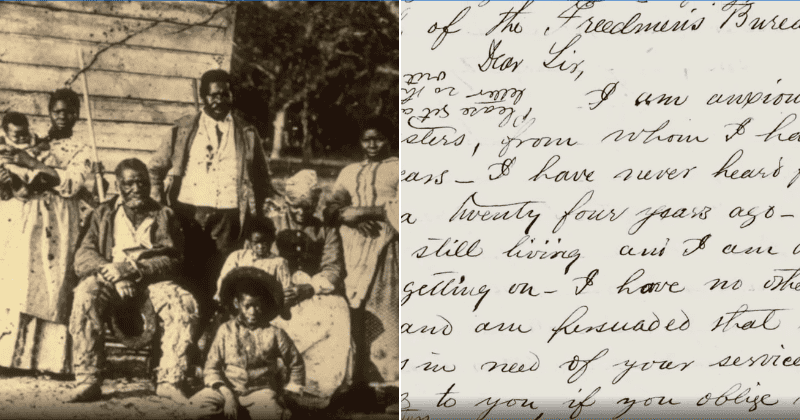 of the Freedmen's Burea
Dear Sir,
I am anxiou
Please
letter
sters, from whom I ha
ears – I have never heard f
a twenty four years ago –
still living and I am a
getting on – I have no othe
and am persuaded that
in need of your service
to you if you oblige